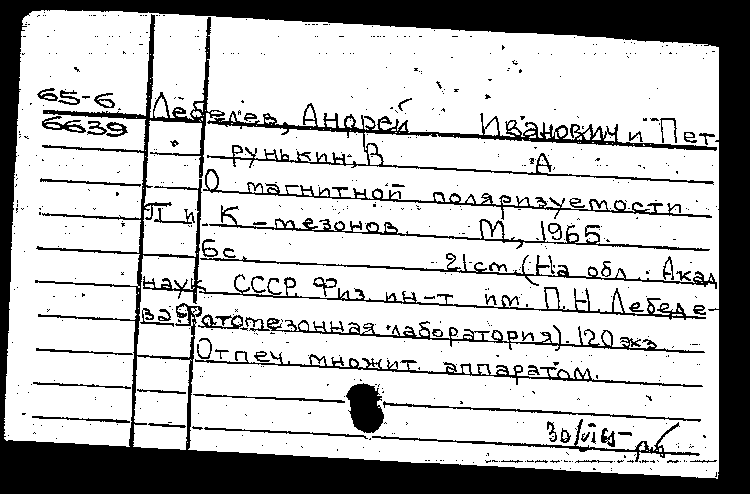 65-6
6639
Лебедев, Андрей Иванович и Пет-
рунькин, В А
О магнитной поляризуемости
П и К - мезонов. М., 1965.
6с. 21 cm. (На обл.: Акад
наук СССР. Физ. ин-т им. П.Н. Лебеде-
ва. Фотомезонная лаборатория). 120 экз
Отпеч. множит. аппаратом.